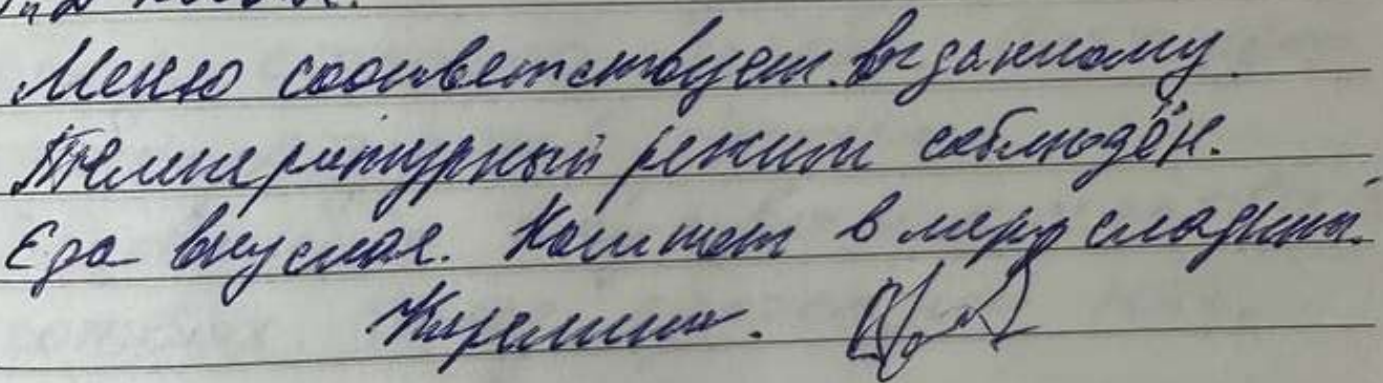 Меню соответствует выданному.
Температурный режим соблюдён.
Еда вкусная. Компот в меру сладкий.